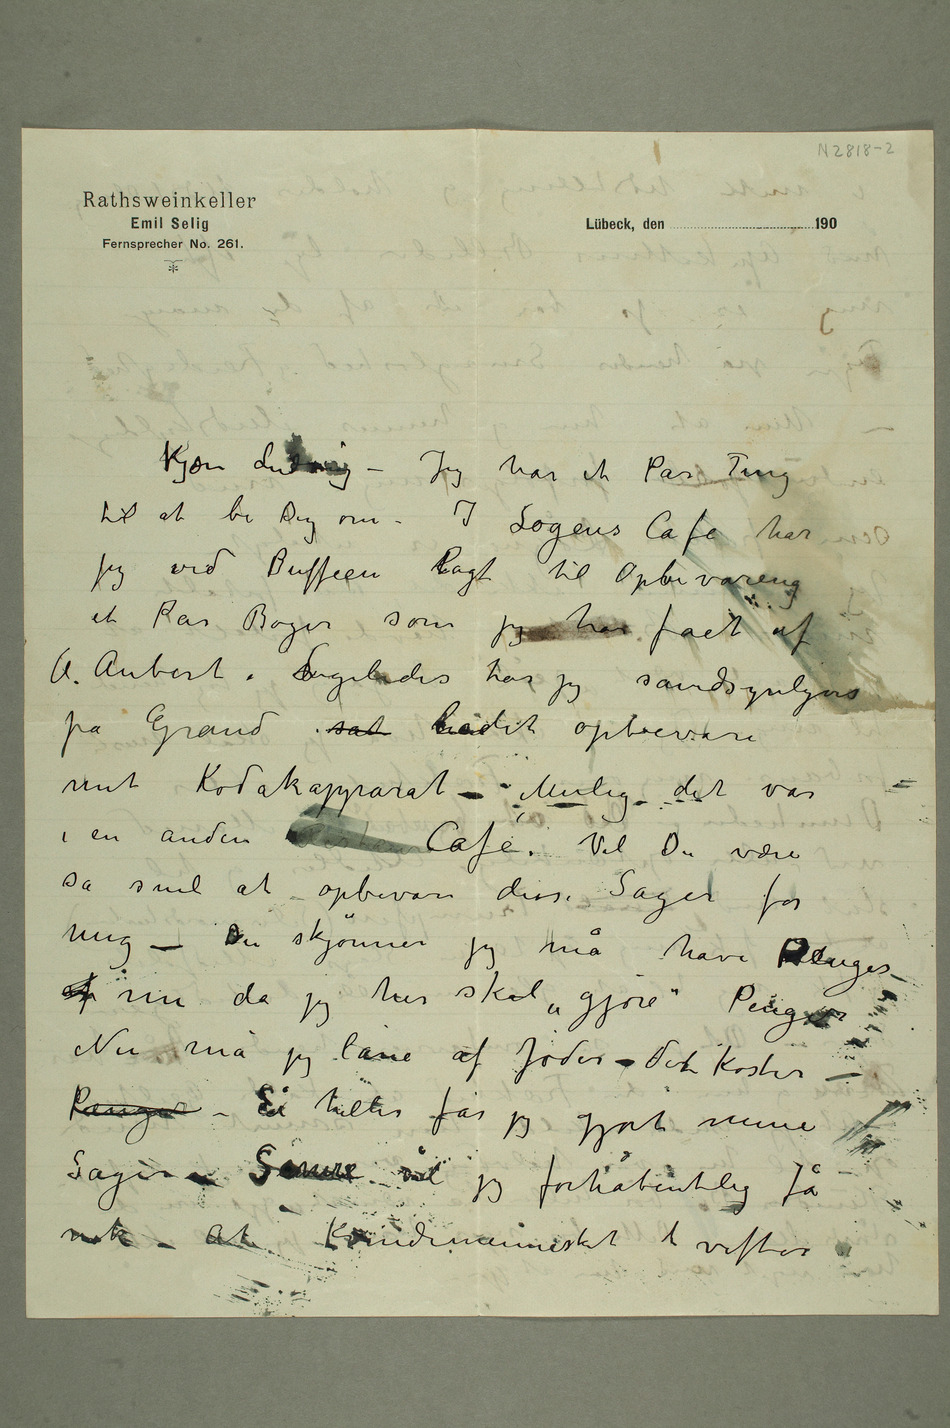 N 2818-2
Rathsweinkeller
Emil Selig
Fernsprecher No. 261.
Lübeck, den 190
Kjære Ludvig – Jeg har et Par Ting
til at be Dig om – I Logens Cafe har
jeg ved Buffeen lagt til Opbevaring
et Par Bøger som jeg har faet af
A. Aubert. Ligeledes har jeg sandsynligvis
på Grand sat ladet opbevare
mit Kodakapparat – Mulig det var
i en anden Café. Vil Du være
så snil at opbevare disse Sager for
mig – Du skjønner jeg må have Penger
af nu da jeg her skal „gjøre" Penger
Nu må jeg låne af Jøder – det koster –
Penger – Ei heller får jeg gjort mine
Sager – Senere vil jeg forhåbentlig få
nok – At Kvindemennesket t vifter